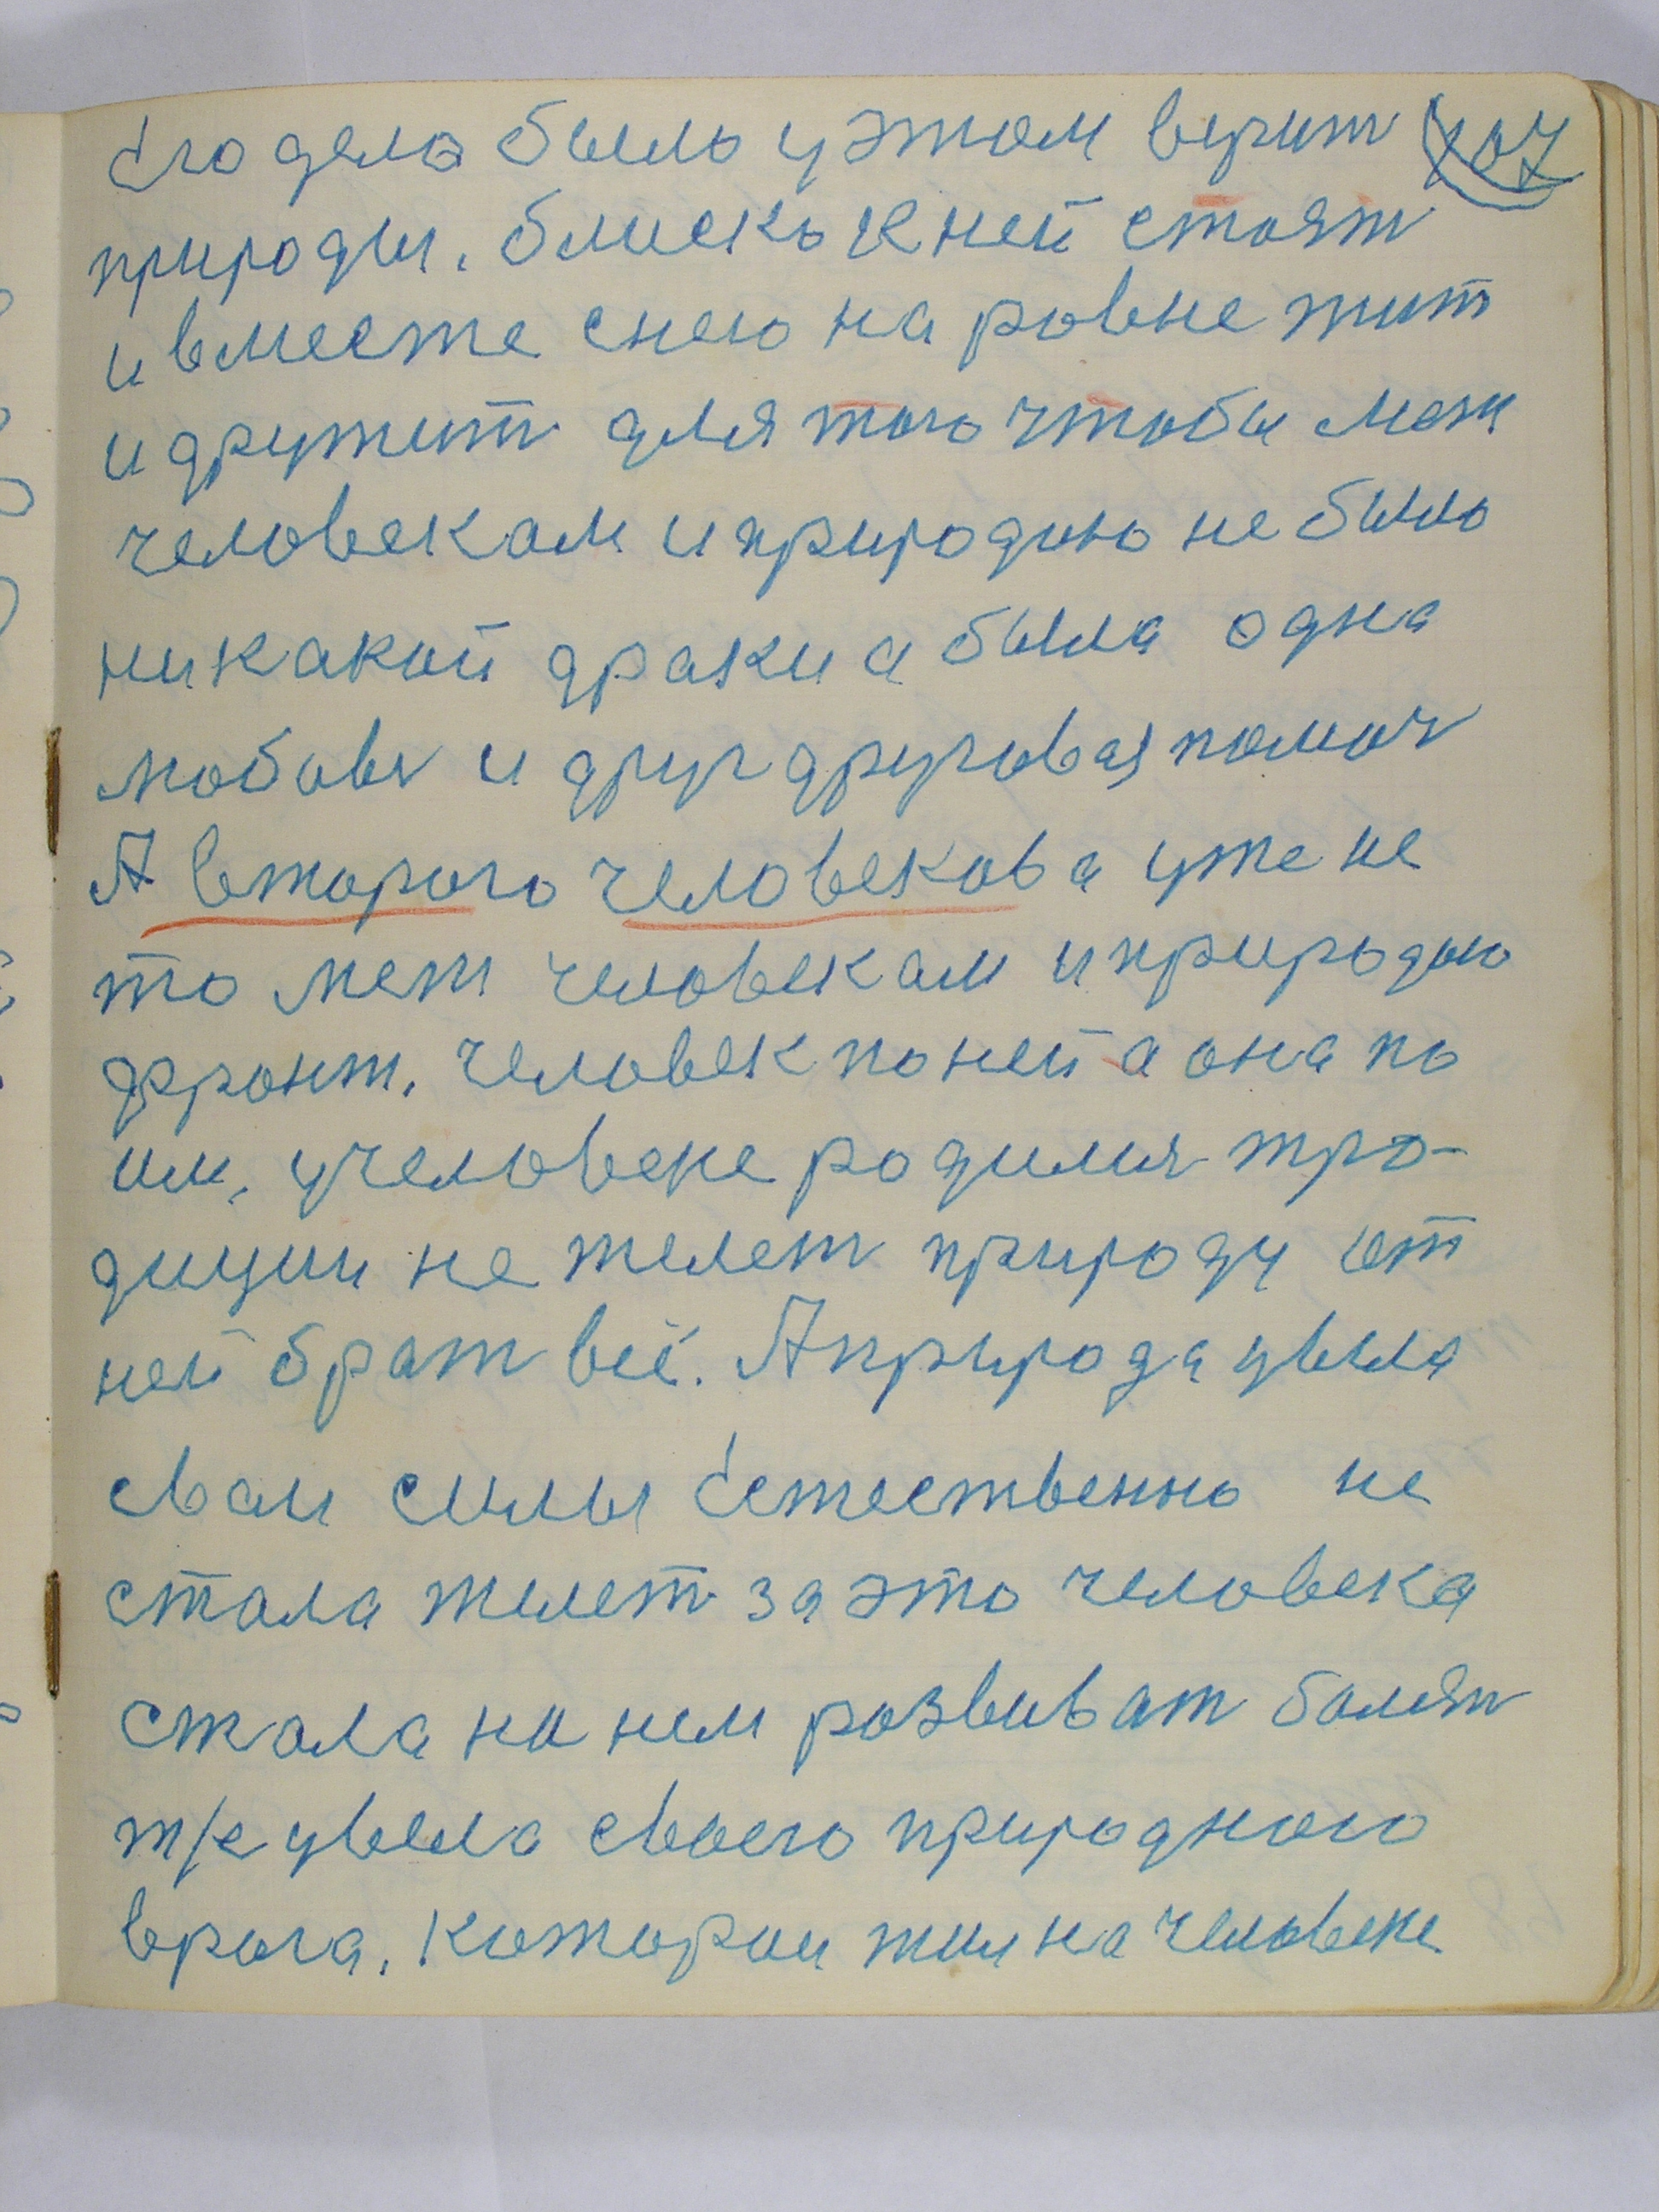 Его дело было у этом верит 107
природы. блиско к ней стоят
и вместе снею на ровне жит
и дружит для того чтобы меж
человекам и природою не было
никакой драки а была одна
любовь и друг друговая помоч
А второго человекова уже не
то меж человекам и природою
фронт. человек по ней а она по
им. у человеке родилися тро-
диции не жилет природу от
ней брат всё. А природа увела
сваи силы Естественно не
стала жилет за это человека
стала на нем розвиват болят
т/е увела своего природного
врага. Которои жил на человеке